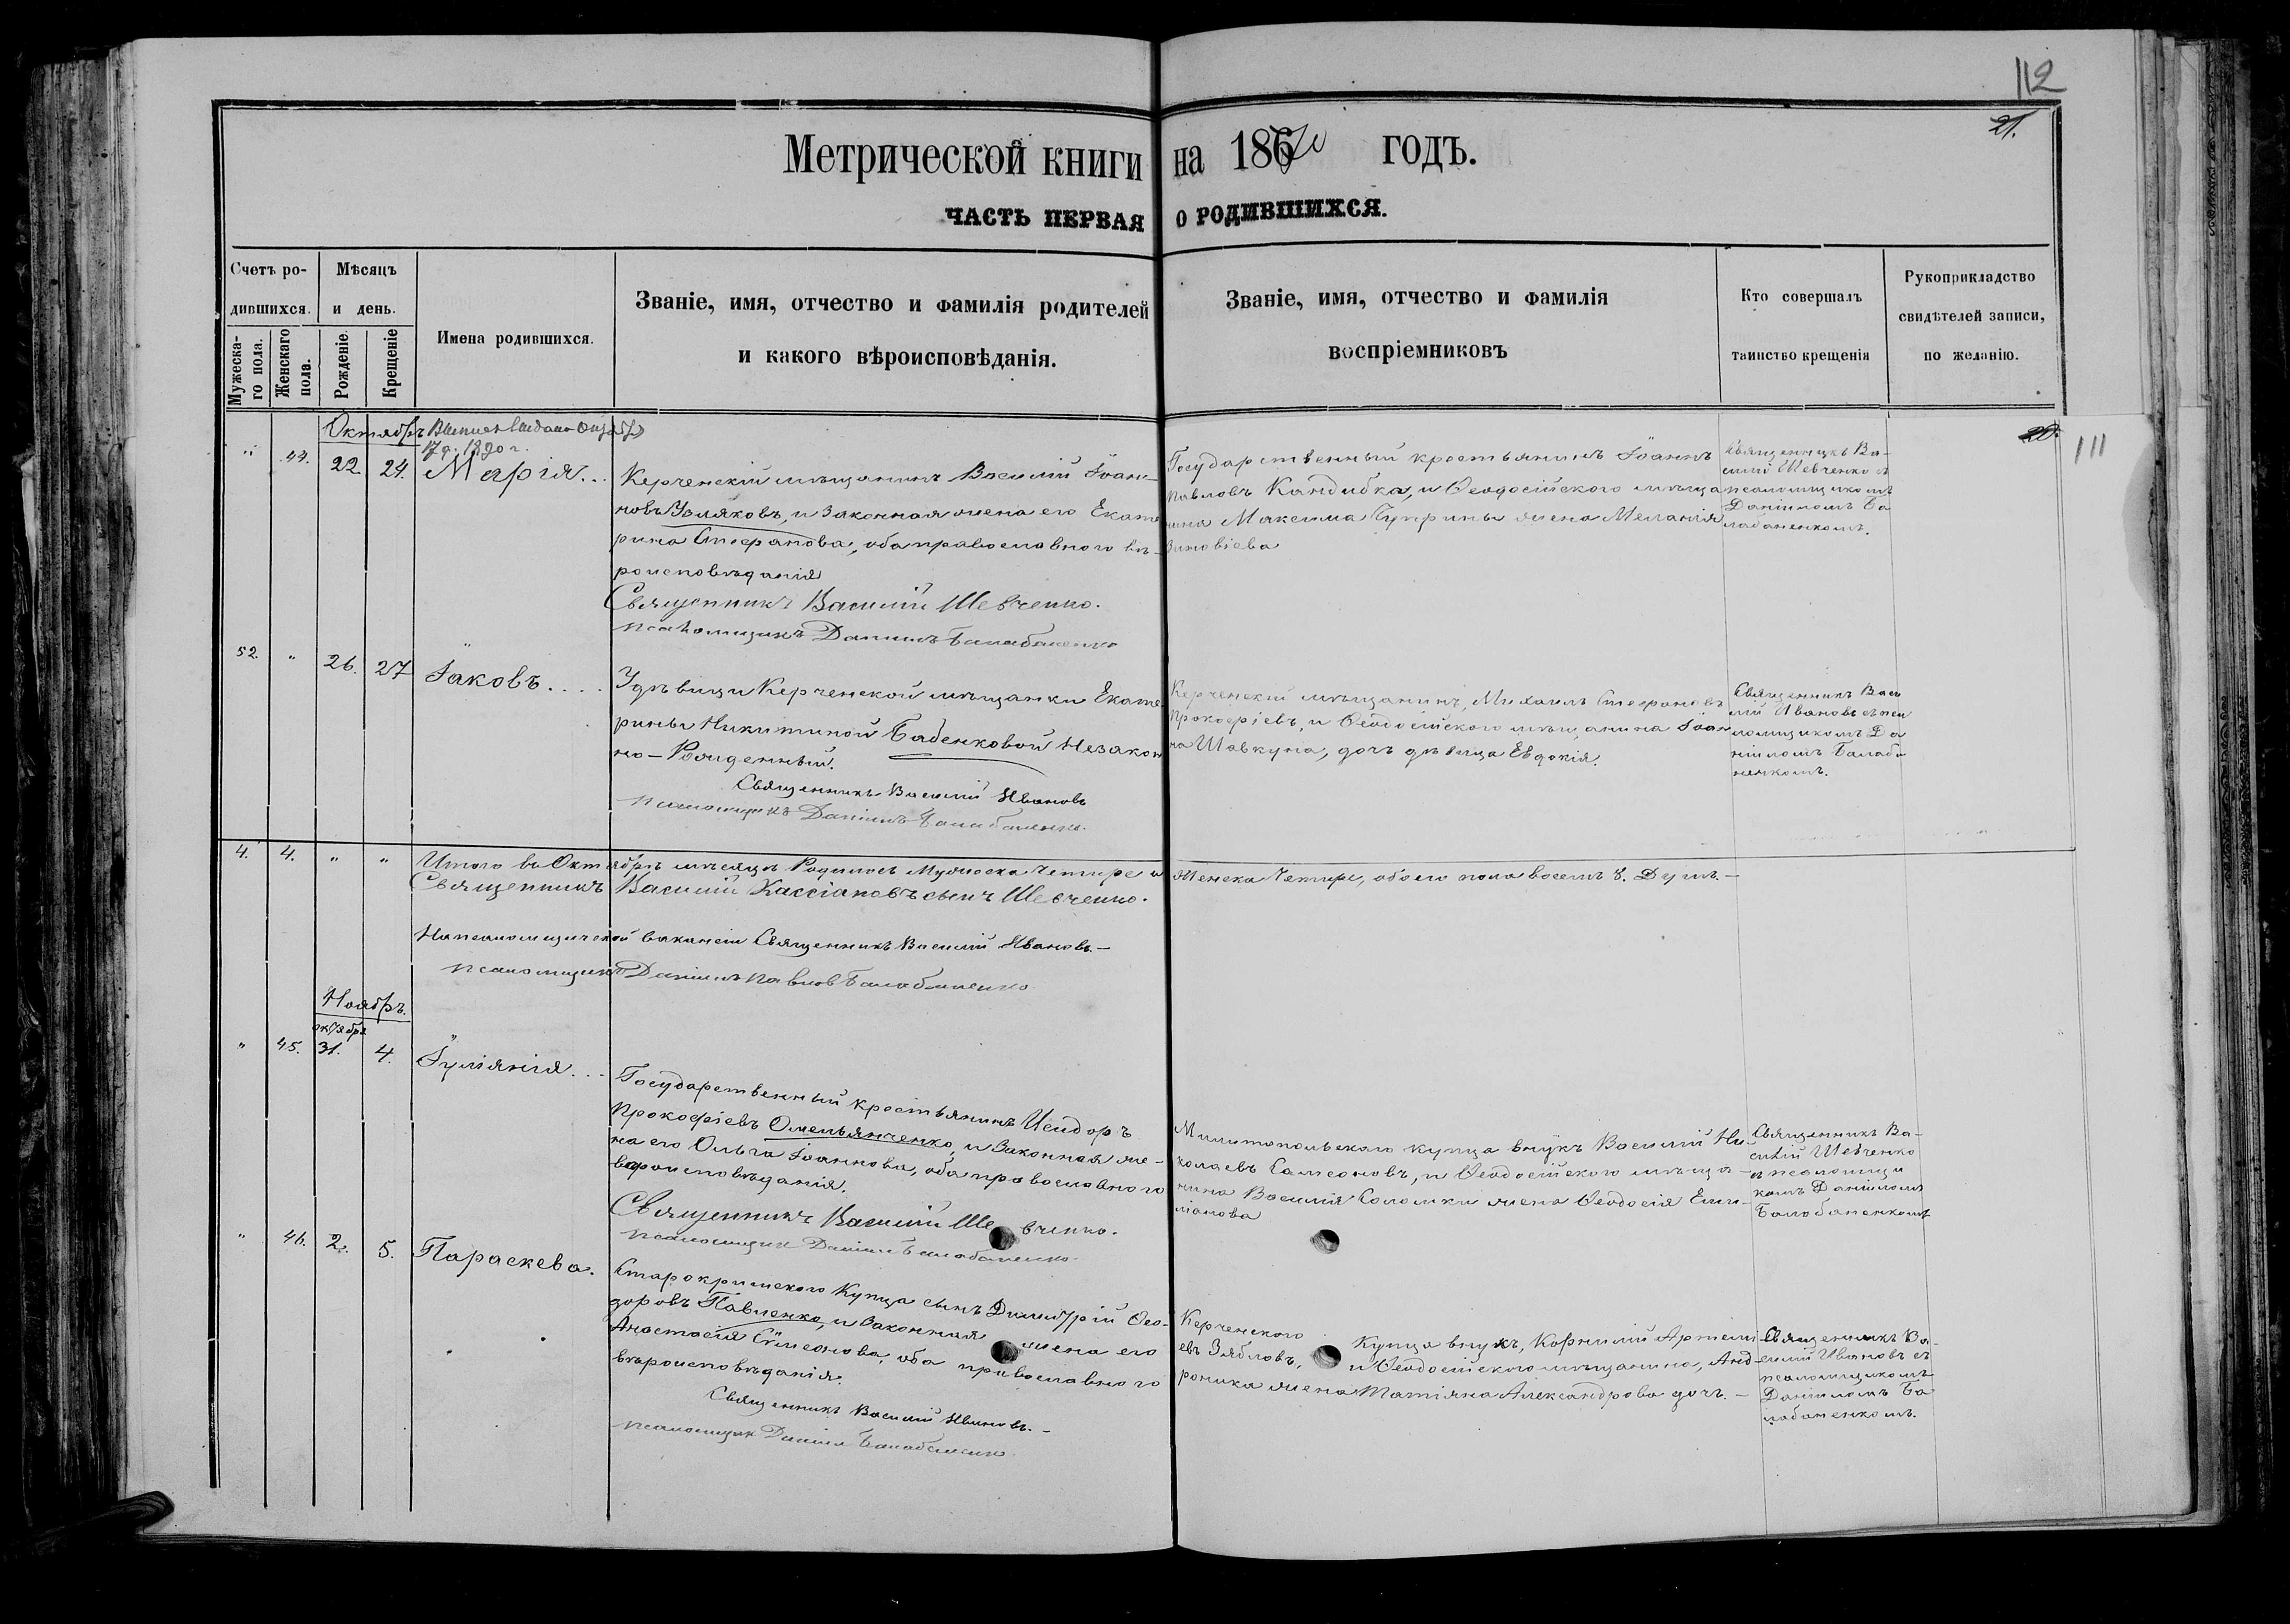 112
21.
Метрической книги на 1870 годъ.
ЧАСТЬ ПЕРВАЯ О РОДИВШИХСЯ.
Счетъ ро-
дившихся.
Мѣсяцъ
и день.
Мужеска-
го пола.
Женскаго
пола.
Рожденіе.
Крещеніе
Имена родившихся.
Званіе, имя, отчество и фамилія родителей
и какого вѣроисповѣданія.
Званіе, имя, отчество и фамилія
воспріемниковъ
Кто совершалъ
таинство крещенія
Рукоприкладство
свидѣтелей записи,
по желанію.
20.
111
Октябрь
1890 г.
" 44. 22 24. Марія...
Керченскій мѣщанинъ Василій Іоан-
новъ Усляковъ, и законная жена его Екате
рина Стефанова, оба православнаго вѣ-
роисповѣданія
Священникъ Василій Шевченко.
псаломщикъ Даніилъ Балабаненко
Государственный крестьянинъ Іоаннъ
Павловъ Кандибка, и Ѳеодосійскаго мѣща
нина Максима Чуприны жена Меланія
Зиновіева
Священникъ Ва-
силій Шевченко съ
псаломщикомъ
Даніиломъ Ба
лабаненкомъ.
52. " 26. 27 Іаковъ....
У дѣвицы Керченской мѣщанки Екате
рины Никитиной Бабенковой Незакон
но-Рожденный.
Священникъ Василій Ивановъ
псаломщикъ Даніилъ Балабаненко.
Керченскій мѣщанинъ, Михаилъ Стефановъ
Прокофіевъ, и Ѳеодосійскаго мѣщанина Іоан
на Шавкуна, дочь дѣвица Евдокія.
Священникъ Васи
лій Ивановъ съ пса
ломщикомъ Да
ніиломъ Балаба
ненкомъ.
4. 4. " " Итого въ Октябрѣ мѣсяцѣ Родилось Мужеска Четыре и Женска Четыре, обоего пола восемь 8. Душъ.-
Священникъ Василій Кассіановъ сынъ Шевченко.
На псаломщической вакансіи Священникъ Василій Ивановъ.-
псаломщикъ Даніилъ Павлов Балабаненко
Ноябрь.
октября
" 45. 31. 4. Іуліянія...
Государственный крестьянинъ Исидоръ
Прокофіевъ Омельянченко, и Законная же-
на его Ольга Іоаннова, оба православного
вѣроисповѣданія.
Священникъ Василій Шевченко.
псаломщик Даніил Балабаненко.
Милитопольскаго купца внукъ Василій Ни
колаевъ Самсоновъ, и Ѳеодосійскаго мѣща-
нина Василія Соломки жена Ѳеодосія Еми-
ліанова
Священникъ Ва-
силій Шевченко
съ псаломщи
комъ Даніиломъ
Балабаненкомъ
" 46. 2. 5. Параскева.
Старокримскаго Купца сынъ Димитрій Ѳео-
доровъ Павленко, и Законная жена его
Анастасія Симеонова, оба православного
вѣроисповѣданія.
Священникъ Василій Ивановъ.-
псаломщик Даніил Балабаненко
Керченскаго Купца внукъ, Корнилій Артеми-
евъ Зябловъ, и Ѳеодосійскаго мѣщанина, Анд-
роника жена Татіяна Александрова дочь.-
Священникъ Ва-
силій Ивановъ съ
псаломщикомъ
Даніиломъ Ба
лабаненкомъ.